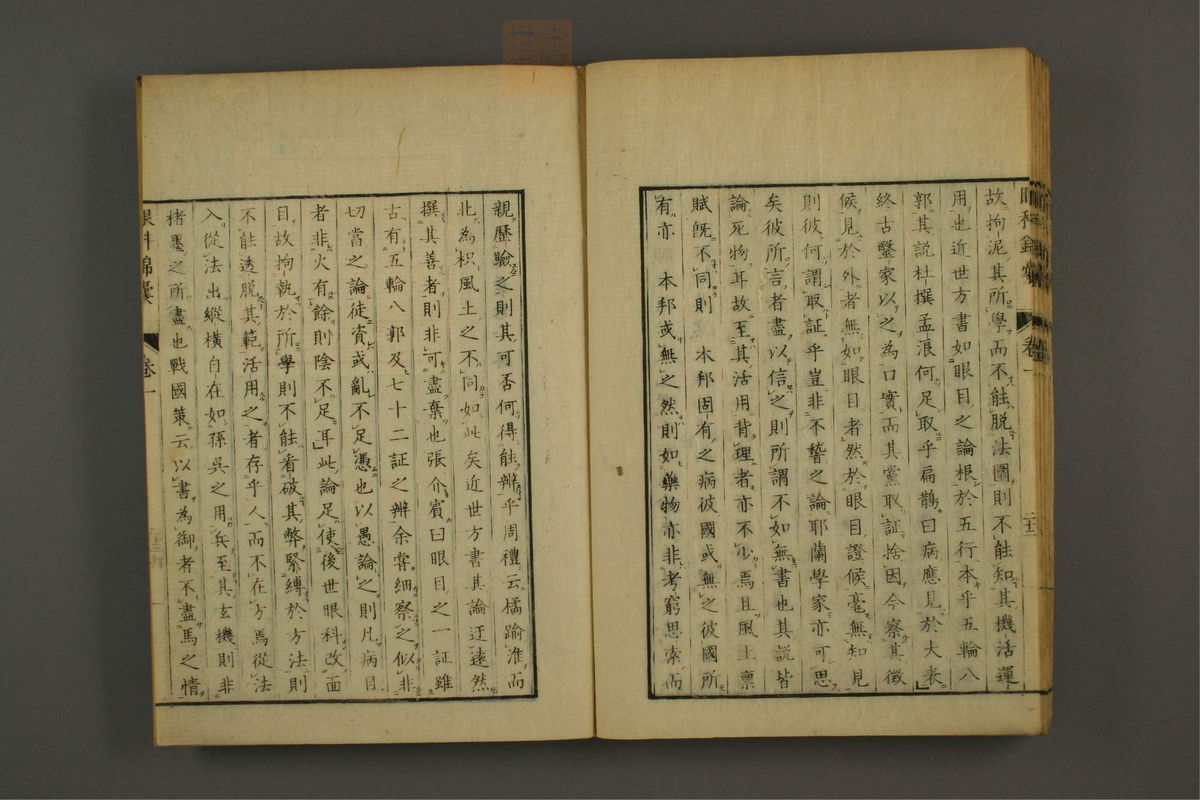 眼科錦囊 卷一
故拘泥其所學而不能脫法圈則不能知其機活運
用也近世方書如眼目之論根於五行本乎五輪八
郭其說杜撰孟浪何足取乎扁鵲曰病應見於大表
終古醫家以之為口實而其黨取証捨因今察其徵
候見於外者無如眼目者然於眼目證候毫無知見
則彼何謂取証乎豈非不鷙之論耶蘭學家亦可思
矣彼所言者盡以信之則所謂不如無書也其說皆
論死物耳故至其活用背理者亦不少焉且風土稟
賦既不同則 本邦固有之病彼國或無之彼國所
有亦 本邦或無之然則如藥物亦非考窮思索而
親歷驗之則其可否何得能辨乎周禮云橘踰淮而
北為枳風土之不同如此矣近世方書其論迂遠然
撰其善者則非可盡棄也張介賓曰眼目之一証雖
古有五輪八郭及七十二証之辨余嘗細察之似非
切當之論徒資或亂不足憑也以愚論之則凡病目
者非火有餘則陰不足耳此論足使後世眼科改面
目故拘執於所學則不能看破其弊緊縛於方法則
不能透脫其範活用之者存乎人而不在方焉從法
入從法出縱橫自在如孫吳之用兵至其玄機則非
楮墨之所盡也戰國策云以書為御者不盡馬之情
眼科錦囊 卷一